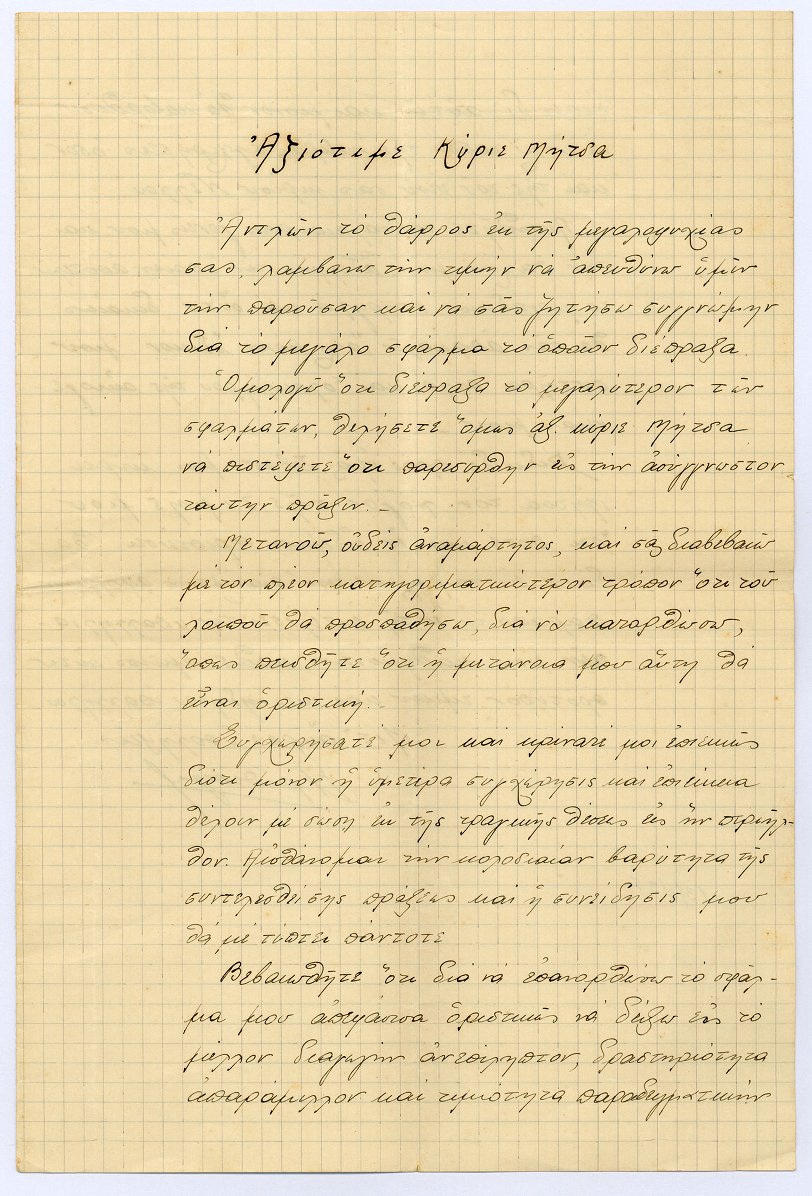 Ἀξιότιμε Κύριε Μήτσα
Ἀντλῶν τὸ θάρρος ἐκ τῆς μεγαλοψυχίας
σας, λαμβάνω τὴν τιμὴν νὰ ἀπευθύνω ὑμῖν
τὴν παροῦσαν καὶ νὰ σᾶς ζητήσω συγγνώμην
διὰ τὸ μεγάλο σφάλμα τὸ ὁποῖον διέπραξα.
Ὁμολογῶ ὅτι διέπραξα τὸ μεγαλύτερον τῶν
σφαλμάτων, θελήσετε ὅμως ἀξ. κύριε Μήτσα
νὰ πιστέψετε ὅτι παρεσύρθην εἰς τὴν ἀσύγγνωστον
ταύτην πρᾶξιν. –
Μετανοῶ, οὐδεὶς ἀναμάρτητος, καὶ σᾶς διαβεβαιῶ
μὲ τὸν πλέον κατηγορηματικώτερον τρόπον ὅτι τοῦ
λοιποῦ θὰ προσπαθήσω, διὰ νὰ κατορθώσω,
ὅπως πεισθῆτε ὅτι ἡ μετάνοια μου αὕτη θὰ
εἶναι ὁριστική. –
Συγχωρήσατέ μοι καὶ κρίνατέ μοι ἐπιεικῶς
διότι μόνον ἡ ὑμετέρα συγχώρησις καὶ ἐπιείκεια
θέλουν μὲ σώσῃ ἐκ τῆς τραγικῆς θέσεως εἰς ἣν περιῆλ-
θον. Αἰσθάνομαι τὴν κολοσιαίαν βαρύτητα τῆς
συντελεσθείσης πράξεως καὶ ἡ συνείδησις μου
θὰ μὲ τύπτει πάντοτε
Βεβαιωθῆτε ὅτι διὰ νὰ ἐπανορθώσω τὸ σφάλ-
μα μου ἀπεφάσισα ὁριστικῶς νὰ δείξω εἰς τὸ
μέλλον διαγωγὴν ἀνεπίληπτον, δραστηριότητα
ἀπαράμιλλον καὶ τιμιότητα παραδειγματικὴν